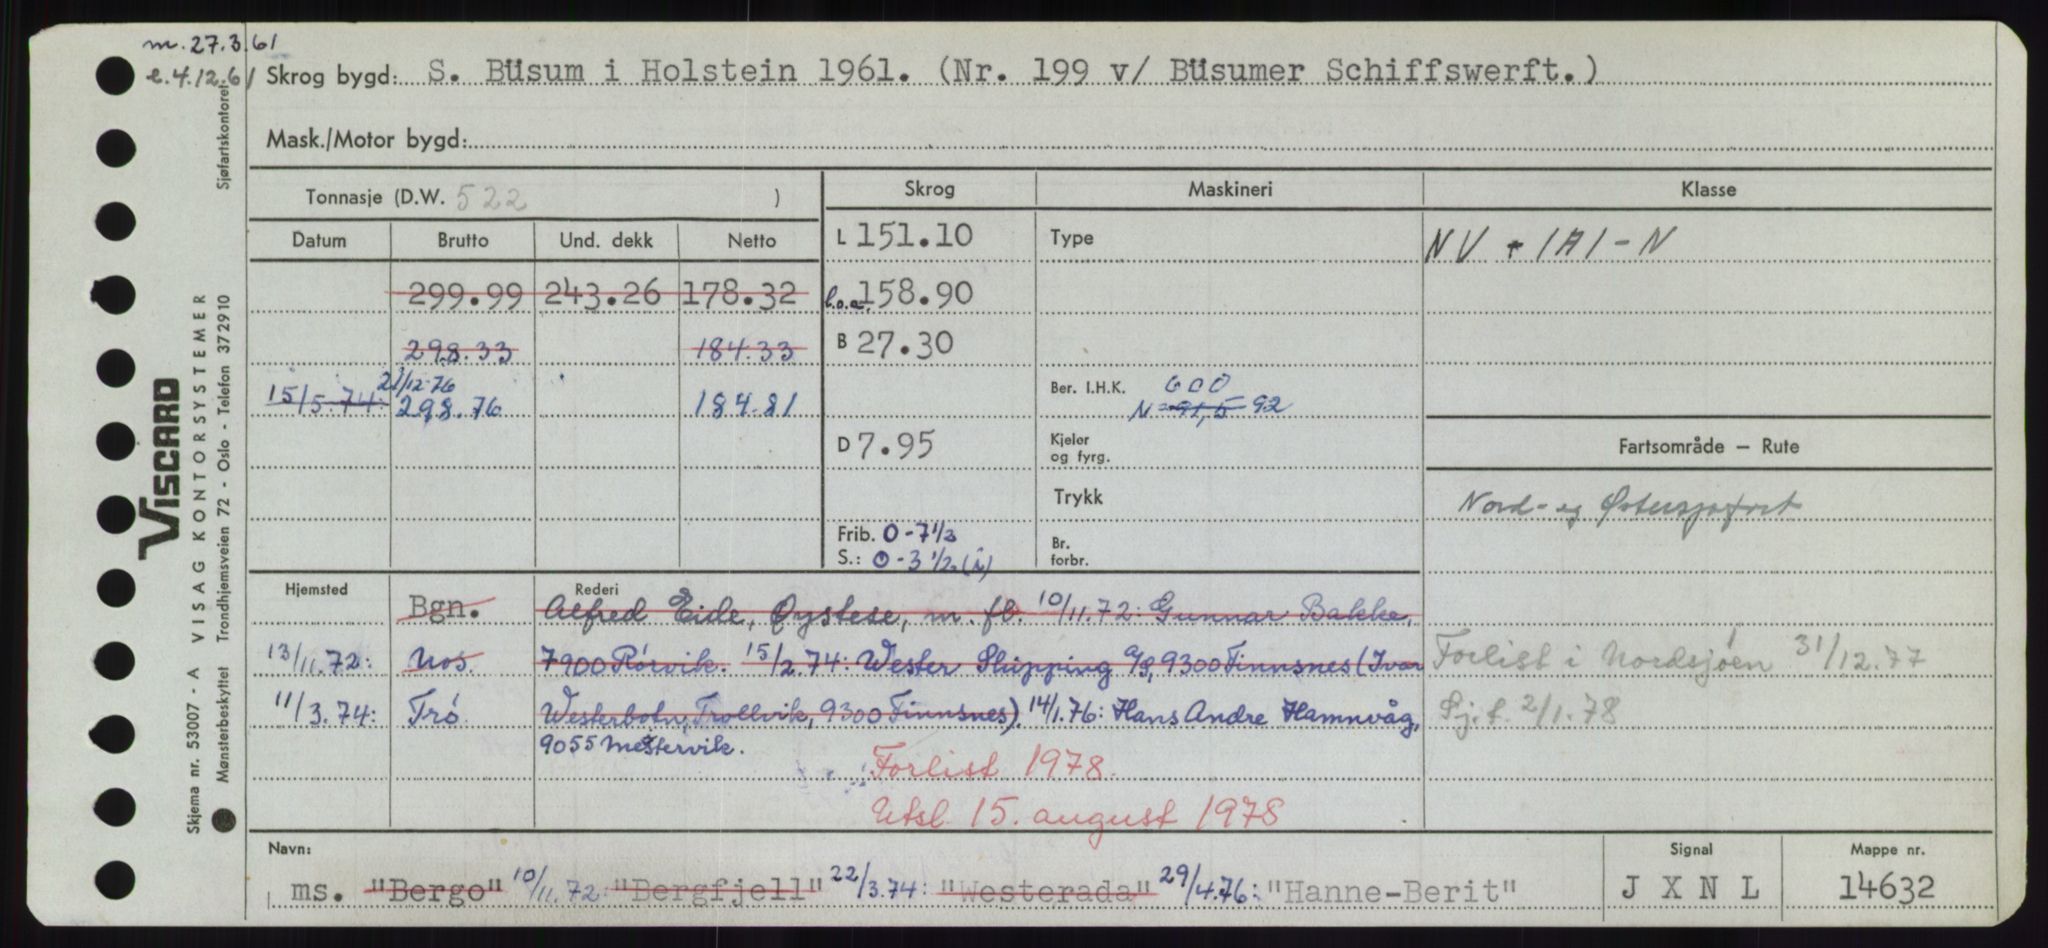 m. 27.3.61
e. 4.12.61
Skrog bygd: S. Büsum i Holstein 1961. (Nr. 199 v/ Büsumer Schiffswerft.)
Mask./Motor bygd:
Tonnasje (D.W. 522 )
Skrog
Maskineri
Klasse
Datum Brutto Und. dekk Netto
L 151.10
Type
NV + 1A1 - N
299.99 243.26 178.32
l.o.a. 158.90
298.33 184.33
B 27.30
15/5.74: 21/12-76 298.76 184.81
Ber. I.H.K. 600
N = 91,5 92
D 7.95
Kjeler og fyrg.
Fartsområde — Rute
Trykk
Nord- og Østersjøfart
Frib. 0-7½
S.: 0-3½ (i)
Br. forbr.
Hjemsted Rederi
Bgn. Alfred Eide, Øystese, m. fl. 10/11.72: Gunnar Bakke,
13/11.72: Nos. 7900 Rörvik. 15/2.74: Wester Shipping A/S, 9300 Finnsnes (Ivar
Forlist i Nordsjøen 31/12.77
11/3.74: Trö. Westerbotn, Trollvik, 9300 Finnsnes). 14/1.76: Hans Andre Hamnvåg,
Sj.f. 2/1.78
9055 Mestervik.
Forlist 1978.
Utsl. 15. august 1978
Navn: Signal Mappe nr.
ms. "Bergo" 10/11.72: "Bergfjell" 22/3.74: "Westerada" 29/4.76: "Hanne-Berit"
J X N L
14632
Sjøfartskontoret
VISCARD
VISAG KONTORSYSTEMER
Trondhjemsveien 72 - Oslo - Telefon 372910
Skjema nr. 53007 - A
Mønsterbeskyttet